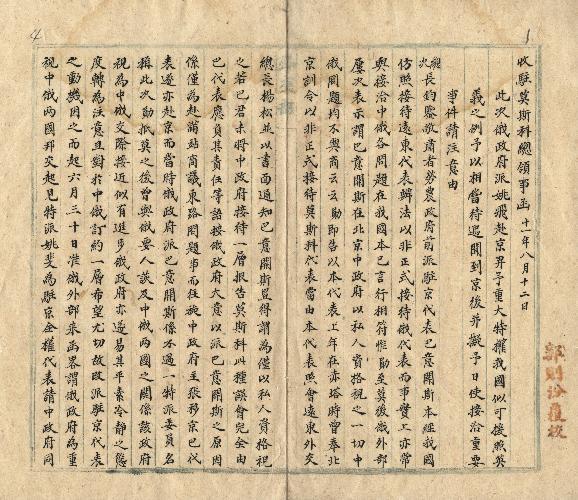 收駐莫斯科總領事函 十一年八月十二日
此次俄政府派姚飛赴京畀予重大特權我國似可按照英
義之例予以相當待遇聞到京後并擬予日使接洽重要
事件請注意由
總次長鈞鑒敬肅者勞農政府前派駐京代表巴意開斯本經我國
仿照接待遠東代表辦法以非正式接待俄代表而事實上亦常
與接洽中俄各問題在我國本已言行相符惟勛至莫後俄外部
屢次表示謂巴意開斯在北京中政府以私人資格視之一切中
俄問題均不與商云云勛即告以本代表上年在赤塔時曾奉北
京訓令以非正式接待莫斯科代表當由本代表照會遠東外交
總長楊松並以書面通知巴意開斯豈得謂為僅以私人資格視
之若巴君未將中政府接待一層報告莫斯科此種誤會完全由
巴代表應負其責任等語據俄政府大意以派巴意開斯之原因
係僅為赴滿站商議東路問題事而往旋中政府主張移京巴代
表遂亦赴京而當時俄政府派巴意開斯係不過一特派委員名
稱此次勛抵莫之後曾與俄要人談及中俄兩國之關係該政府
視為中俄交際接近似有進步俄政府亦遂易其平素冷靜之態
度轉為注意且對於中俄訂約一層希望尤切故改派駐京代表
之動機因之而起六月三十日准俄外部來函畧謂俄政府為重
視中俄兩國邦交起見特派姚斐為駐京全權代表請中政府同